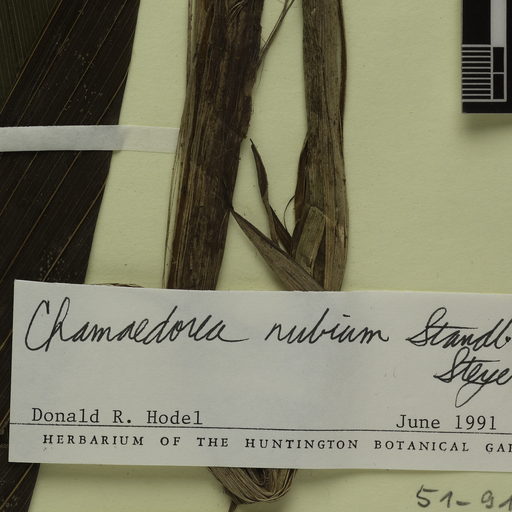 Chamaedorea nubium Standl
Steye
Donald R. Hodel June 1991
HERBARIUM OF THE HUNTINGTON BOTANICAL GA
51-91